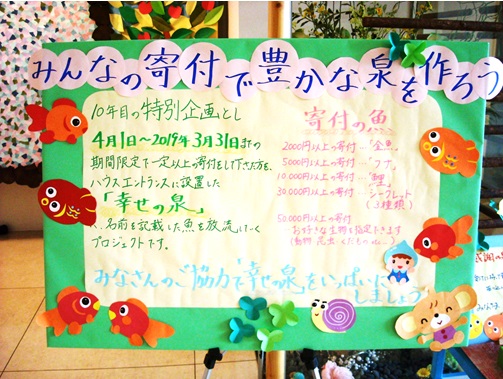 みんなの寄付で豊かな泉を作ろう
10年目の特別企画とし
4月1日〜2019年3月31日までの
期間限定で一定以上の寄付をして下さった方を、
ハウスエントランスに設置した
「幸せの泉」
に、名前を記載した魚を放流していく
プロジェクトです。
寄付の魚
2000円以上の寄付…「金魚」
5000円以上の寄付…「フナ」
10,000円以上の寄付…「鯉」
30,000円以上の寄付…シークレット
(3種類)
50,000円以上の寄付
…お好きな生物を指定できます
(動物、昆虫、くだもの etc…)
みなさんのご協力で「幸せの泉」をいっぱいに
しましょう